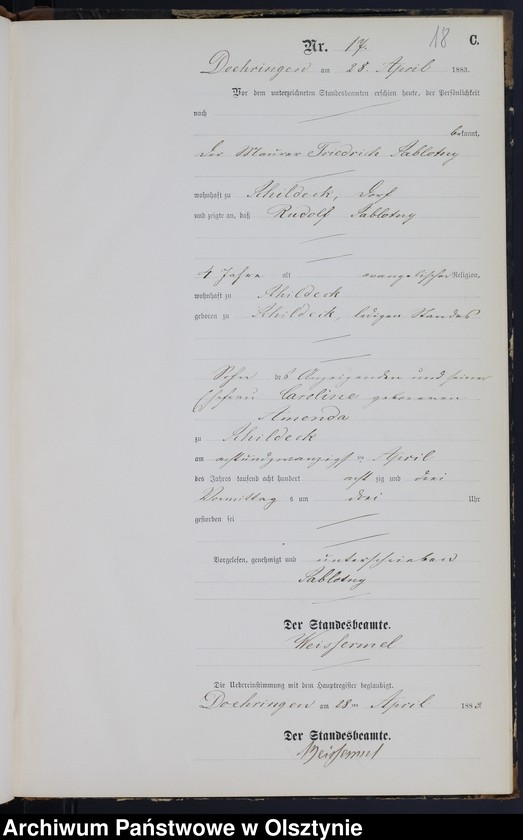 18
C.
Nr. 17.
Doehringen am 28. April 1883.
Vor dem unterzeichneten Standesbeamten erschien heute, der Persönlichkeit
nach
bekannt,
der Maurer Friedrich Sablotny
wohnhaft zu Schildeck, Dorf
und zeigte an, daß Rudolf Sablotny
4 Jahre alt evangelischer Religion,
wohnhaft zu Schildeck
geboren zu Schildeck, ledigen Standes
Sohn des Anzeigenden und seiner
Ehefrau Caroline geborenen
Amenda
zu Schildeck
am achtundzwanzigsten April
des Jahres tausend acht hundert achtzig und drei
Vormittags um drei Uhr
gestorben sei
Vorgelesen, genehmigt und unterschrieben
Sablotny
Der Standesbeamte.
Weissermel
Die Uebereinstimmung mit dem Hauptregister beglaubigt.
Doehringen am 28ten April 1883.
Der Standesbeamte.
Weissermel
Archiwum Państwowe w Olsztynie